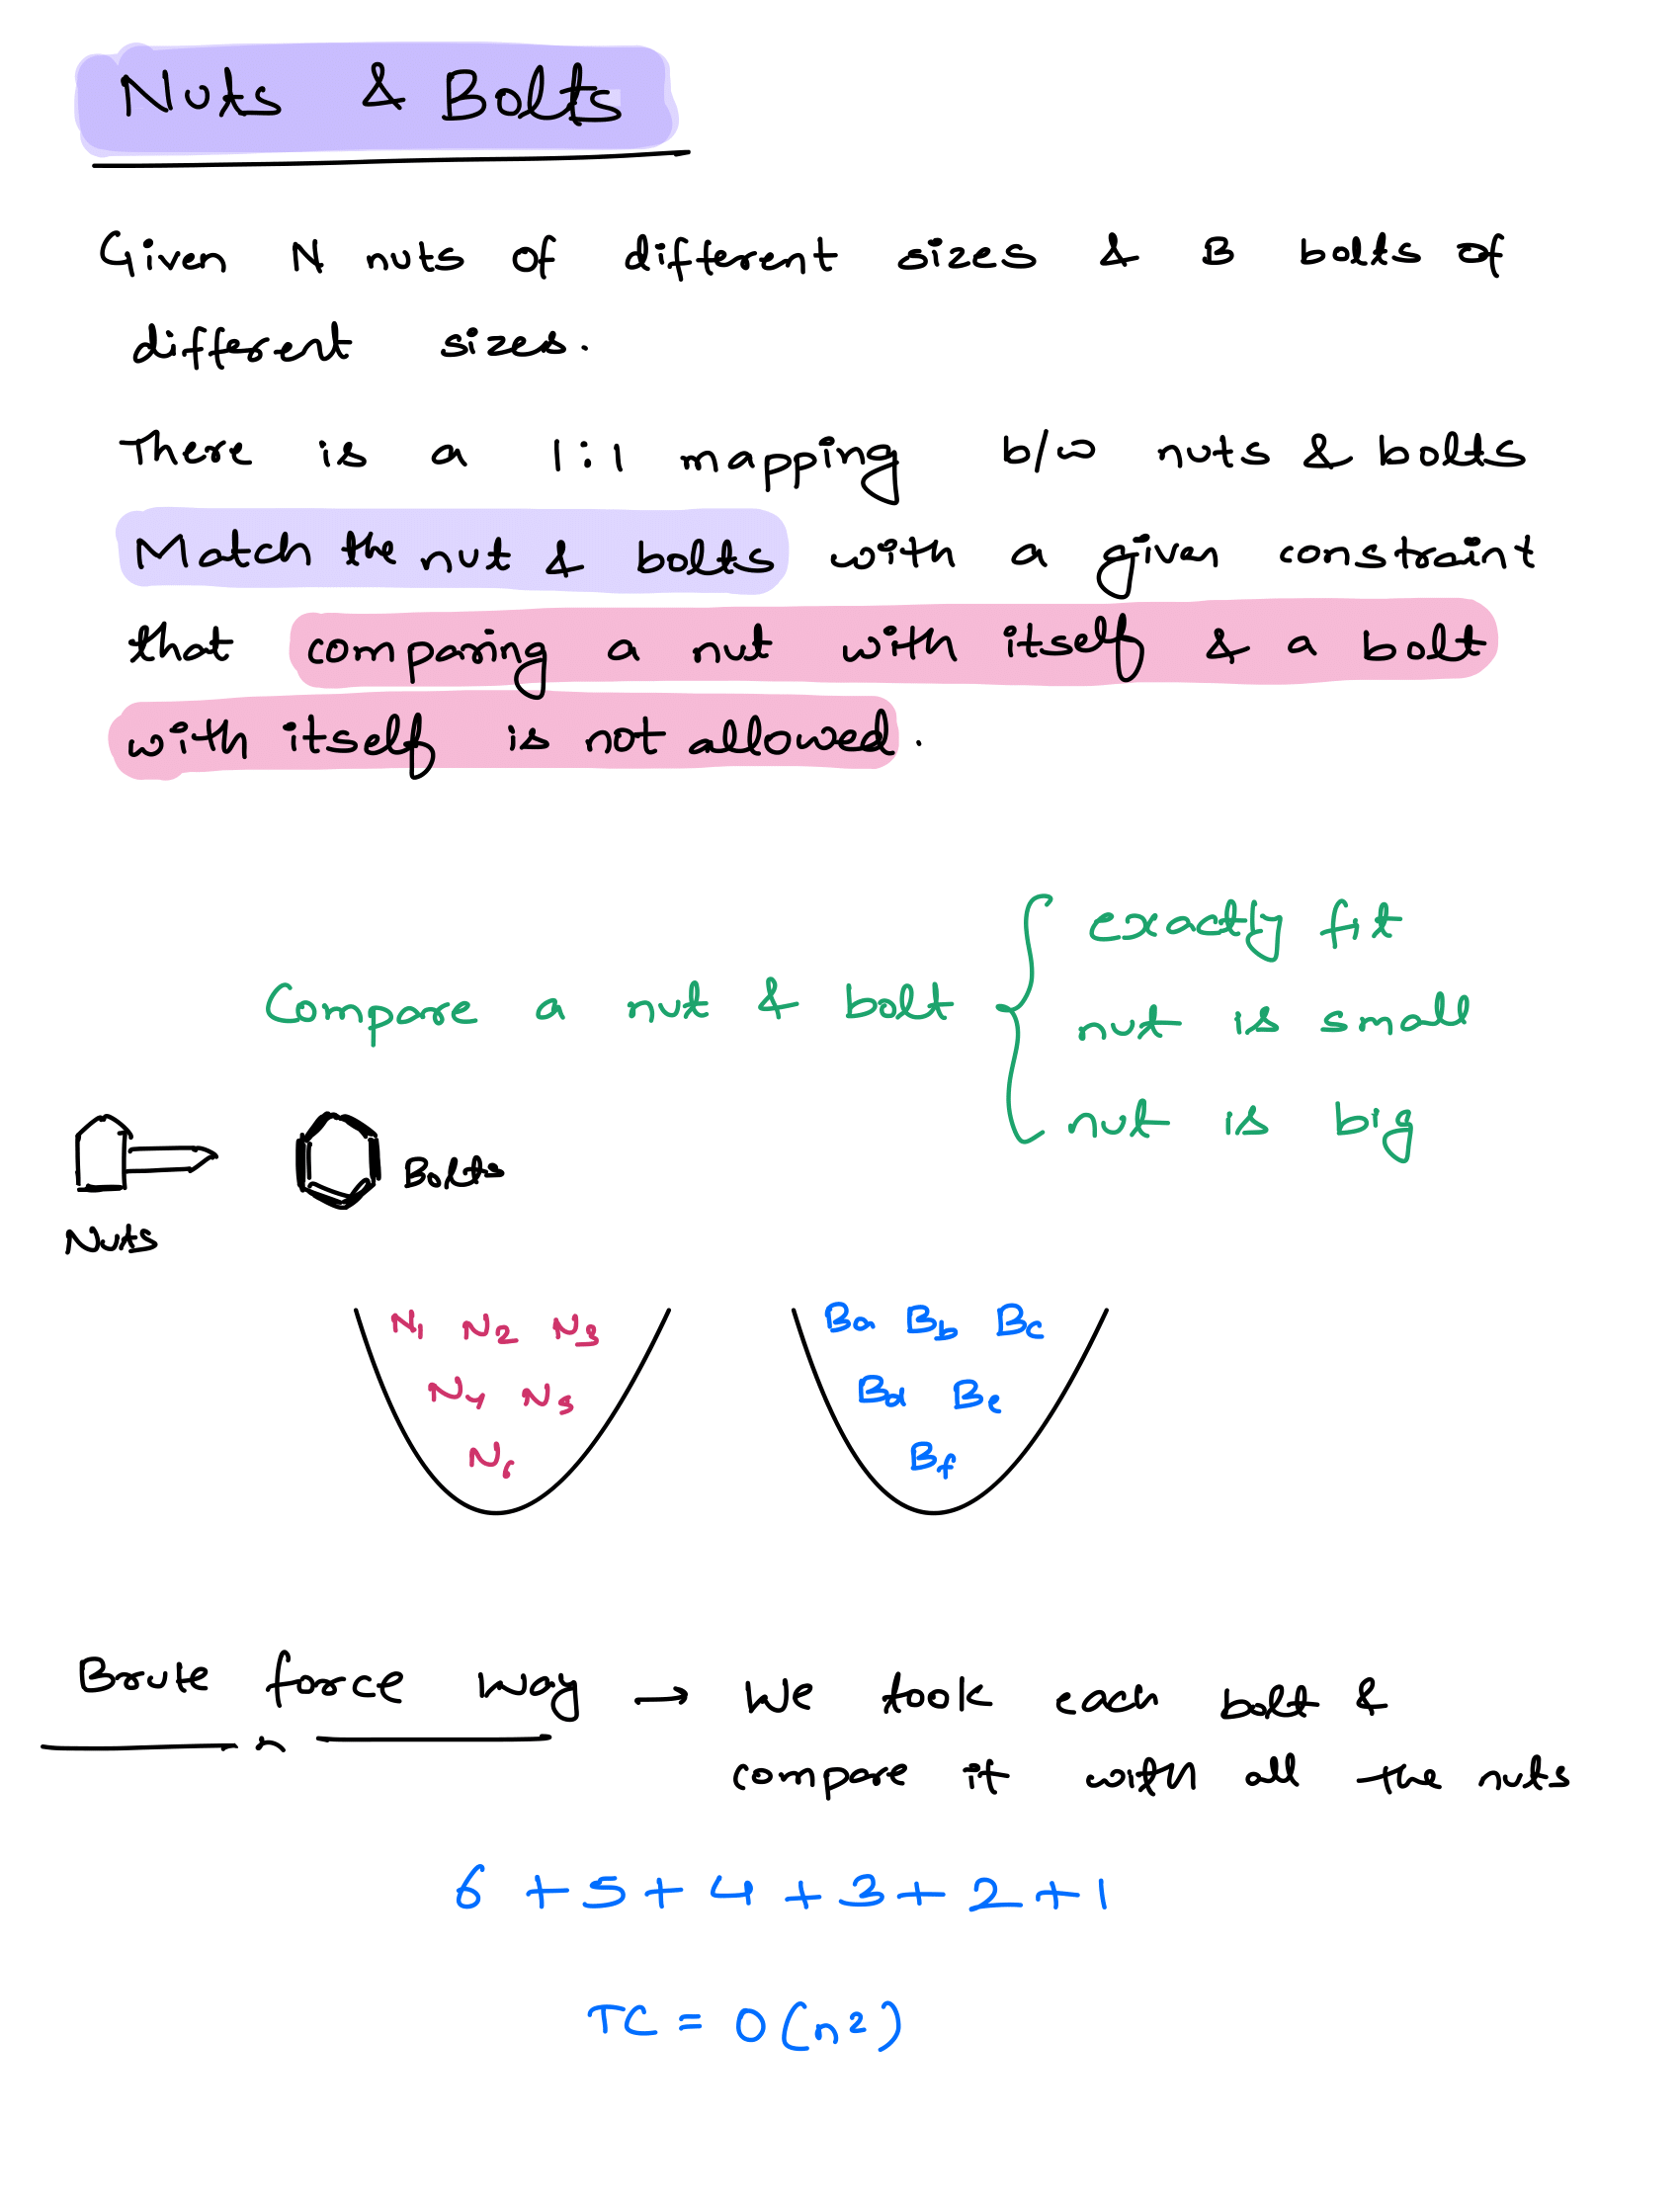 Nuts & Bolts
Given N nuts of different sizes & B bolts of
different sizes.
There is a 1:1 mapping b/w nuts & bolts
Match the nut & bolts with a given constraint
that comparing a nut with itself & a bolt
with itself is not allowed.
Compare a nut & bolt
exactly fit
nut is small
nut is big
Bolts
Nuts
N1 N2 N3
N4 N5
N6
Ba Bb Bc
Bd Be
Bf
Brute force way → We took each bolt &
compare it with all the nuts
6 + 5 + 4 + 3 + 2 + 1
TC = O(n²)